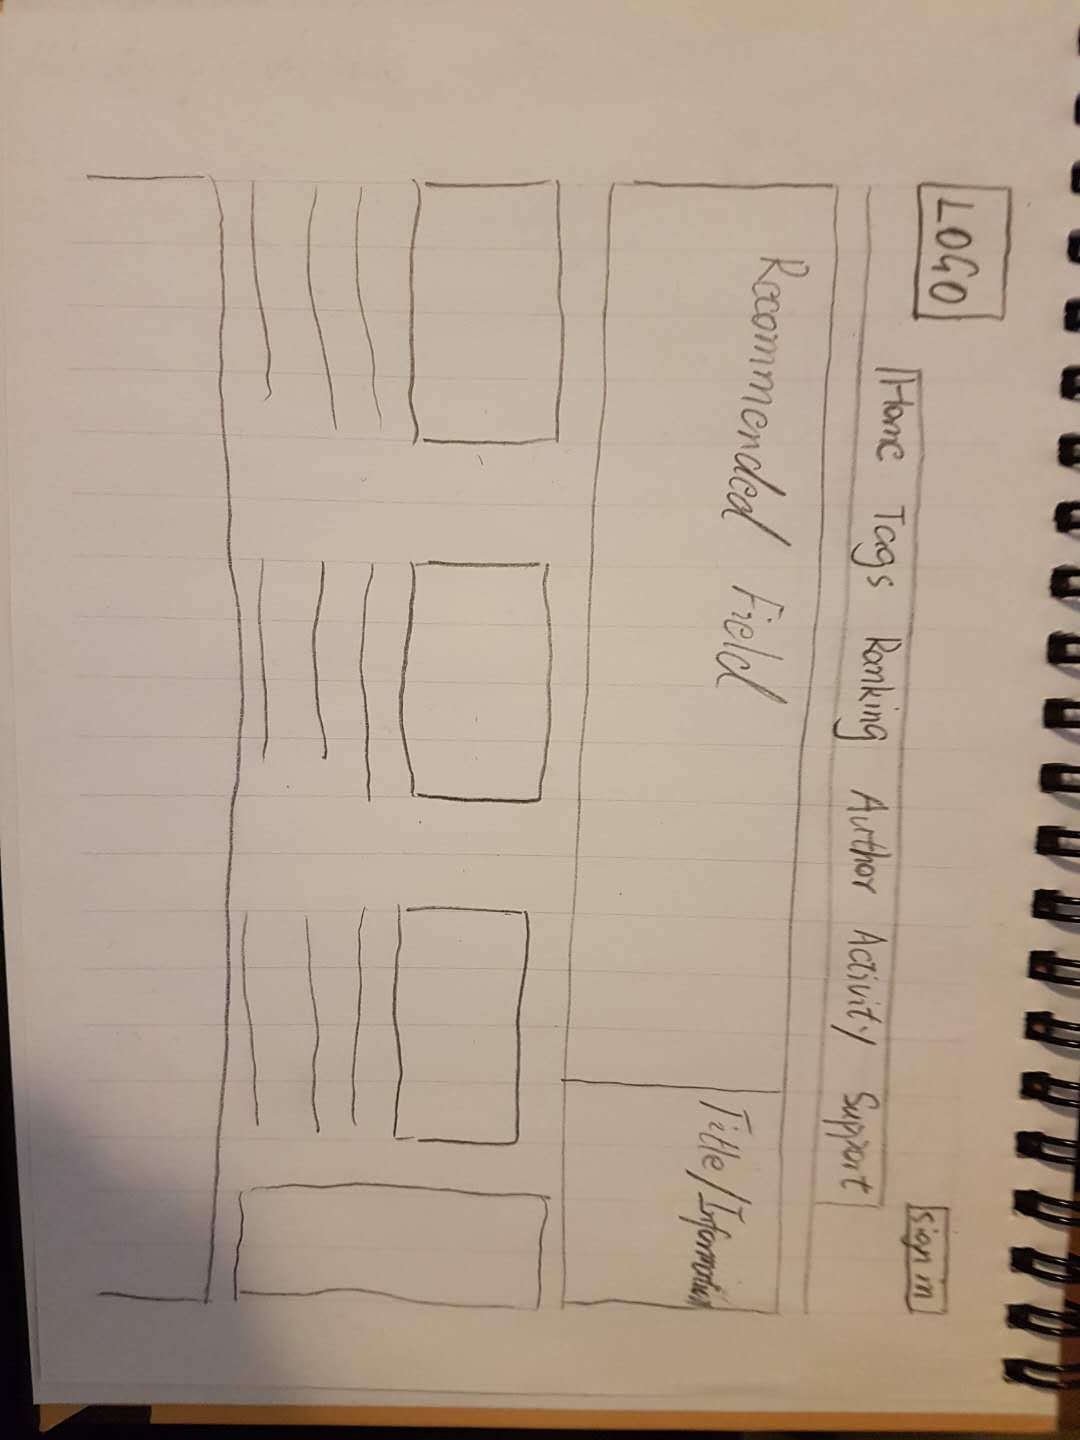 LOGO
Home Tags Ranking Author Activity Support
Sign in
Recommended Field
Title/Information